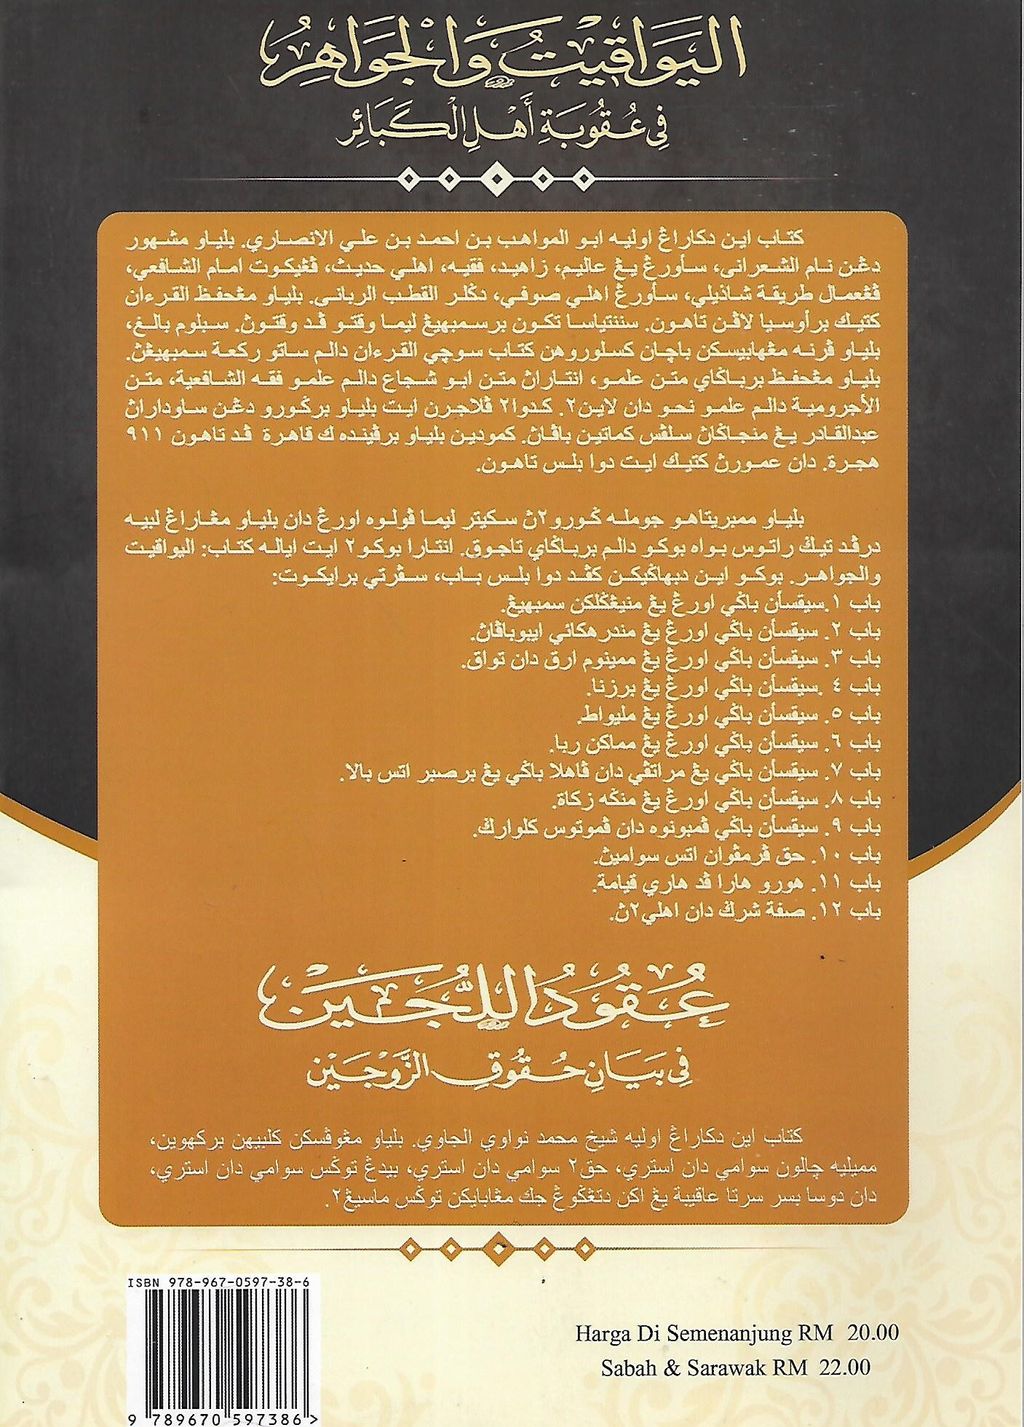 اليَوَاقِيْتُ وَالْجَوَاهِرُ
فِي عُقُوبَةِ أَهْلِ الْكَبَائِرِ
كتاب اين دکارڠ اوليه ابو المواهب بن احمد بن علي الانصاري. بلياو مشهور
دڠن نام الشعراني، سأورڠ يڠ عاليم، زاهيد، فقيه، اهلي حديث، ڤڠيکوت امام الشافعي،
ڤڠعمال طريقة شاذيلي، سأورڠ اهلي صوفي، دݢلر القطب الرباني. بلياو مڠحفظ القرءان
کتيک برأوسيا لاڤن تاهون. سنتتياسا تکون برسمبهيڠ ليما وقتو ڤد وقتوڽ. سبلوم بالغ،
بلياو ڤرنه مڠهابيسکن باچان کسلوروهن کتاب سوچي القرءان دالم ساتو رکعة سمبهيڠڽ.
بلياو مڠحفظ برباݢاي متن علمو، انتاراڽ متن ابو شجاع دالم علمو فقه الشافعية، متن
الأجرومية دالم علمو نحو دان لاين٢. کدوا٢ ڤلاجرن ايت بلياو برݢورو دڠن ساوداراڽ
عبدالقادر يڠ منجاݢاڽ سلڤس کماتين باڤاڽ. کمودين بلياو برڤينده ک قاهرة ڤد تاهون ٩١١
هجرة. دان عمورڽ کتيک ايت دوا بلس تاهون.
بلياو ممبريتاهو جومله ݢورو٢ڽ سکيتر ليما ڤولوه اورڠ دان بلياو مڠارڠ لبيه
درڤد تيݢ راتوس بواه بوکو دالم برباݢاي تاجوق. انتارا بوکو٢ ايت اياله کتاب: اليواقيت
والجواهر. بوکو اين دبهاݢيکن کڤد دوا بلس باب، سڤرتي برايکوت:
باب ١. سيقسأن باݢي اورڠ يڠ منيڠݢلکن سمبهيڠ.
باب ٢. سيقسأن باݢي اورڠ يڠ مندرهکائي ايبوباڤاڽ.
باب ٣. سيقسأن باݢي اورڠ يڠ ممينوم ارق دان تواق.
باب ٤. سيقسأن باݢي اورڠ يڠ برزنا.
باب ٥. سيقسأن باݢي اورڠ يڠ مليواط.
باب ٦. سيقسأن باݢي اورڠ يڠ مماکن ربا.
باب ٧. سيقسأن باݢي يڠ مراتڤي دان ڤاهلا باݢي يڠ برصبر اتس بالا.
باب ٨. سيقسأن باݢي اورڠ يڠ منݢه زکاة.
باب ٩. سيقسأن باݢي ڤمبونوه دان ڤموتوس کلوارݢ.
باب ١٠. حق ڤرمڤوان اتس سواميڽ.
باب ١١. هورو هارا ڤد هاري قيامة.
باب ١٢. صفة شرݢ دان اهلي٢ڽ.
عُقُودُ اللُّجَيْنِ
فِي بَيَانِ حُقُوقِ الزَّوْجَيْنِ
کتاب اين دکارڠ اوليه شيخ محمد نواوي الجاوي. بلياو مڠوڤسکن کلبيهن برکهوين،
مميليه چالون سوامي دان استري، حق٢ سوامي دان استري، بيدڠ توݢس سوامي دان استري،
دان دوسا بسر سرتا عاقيبة يڠ اکن دتڠݢوڠ جک مڠابايکن توݢس ماسيڠ٢.
ISBN 978-967-0597-38-6
Harga Di Semenanjung RM 20.00
Sabah & Sarawak RM 22.00
9 789670 597386 >